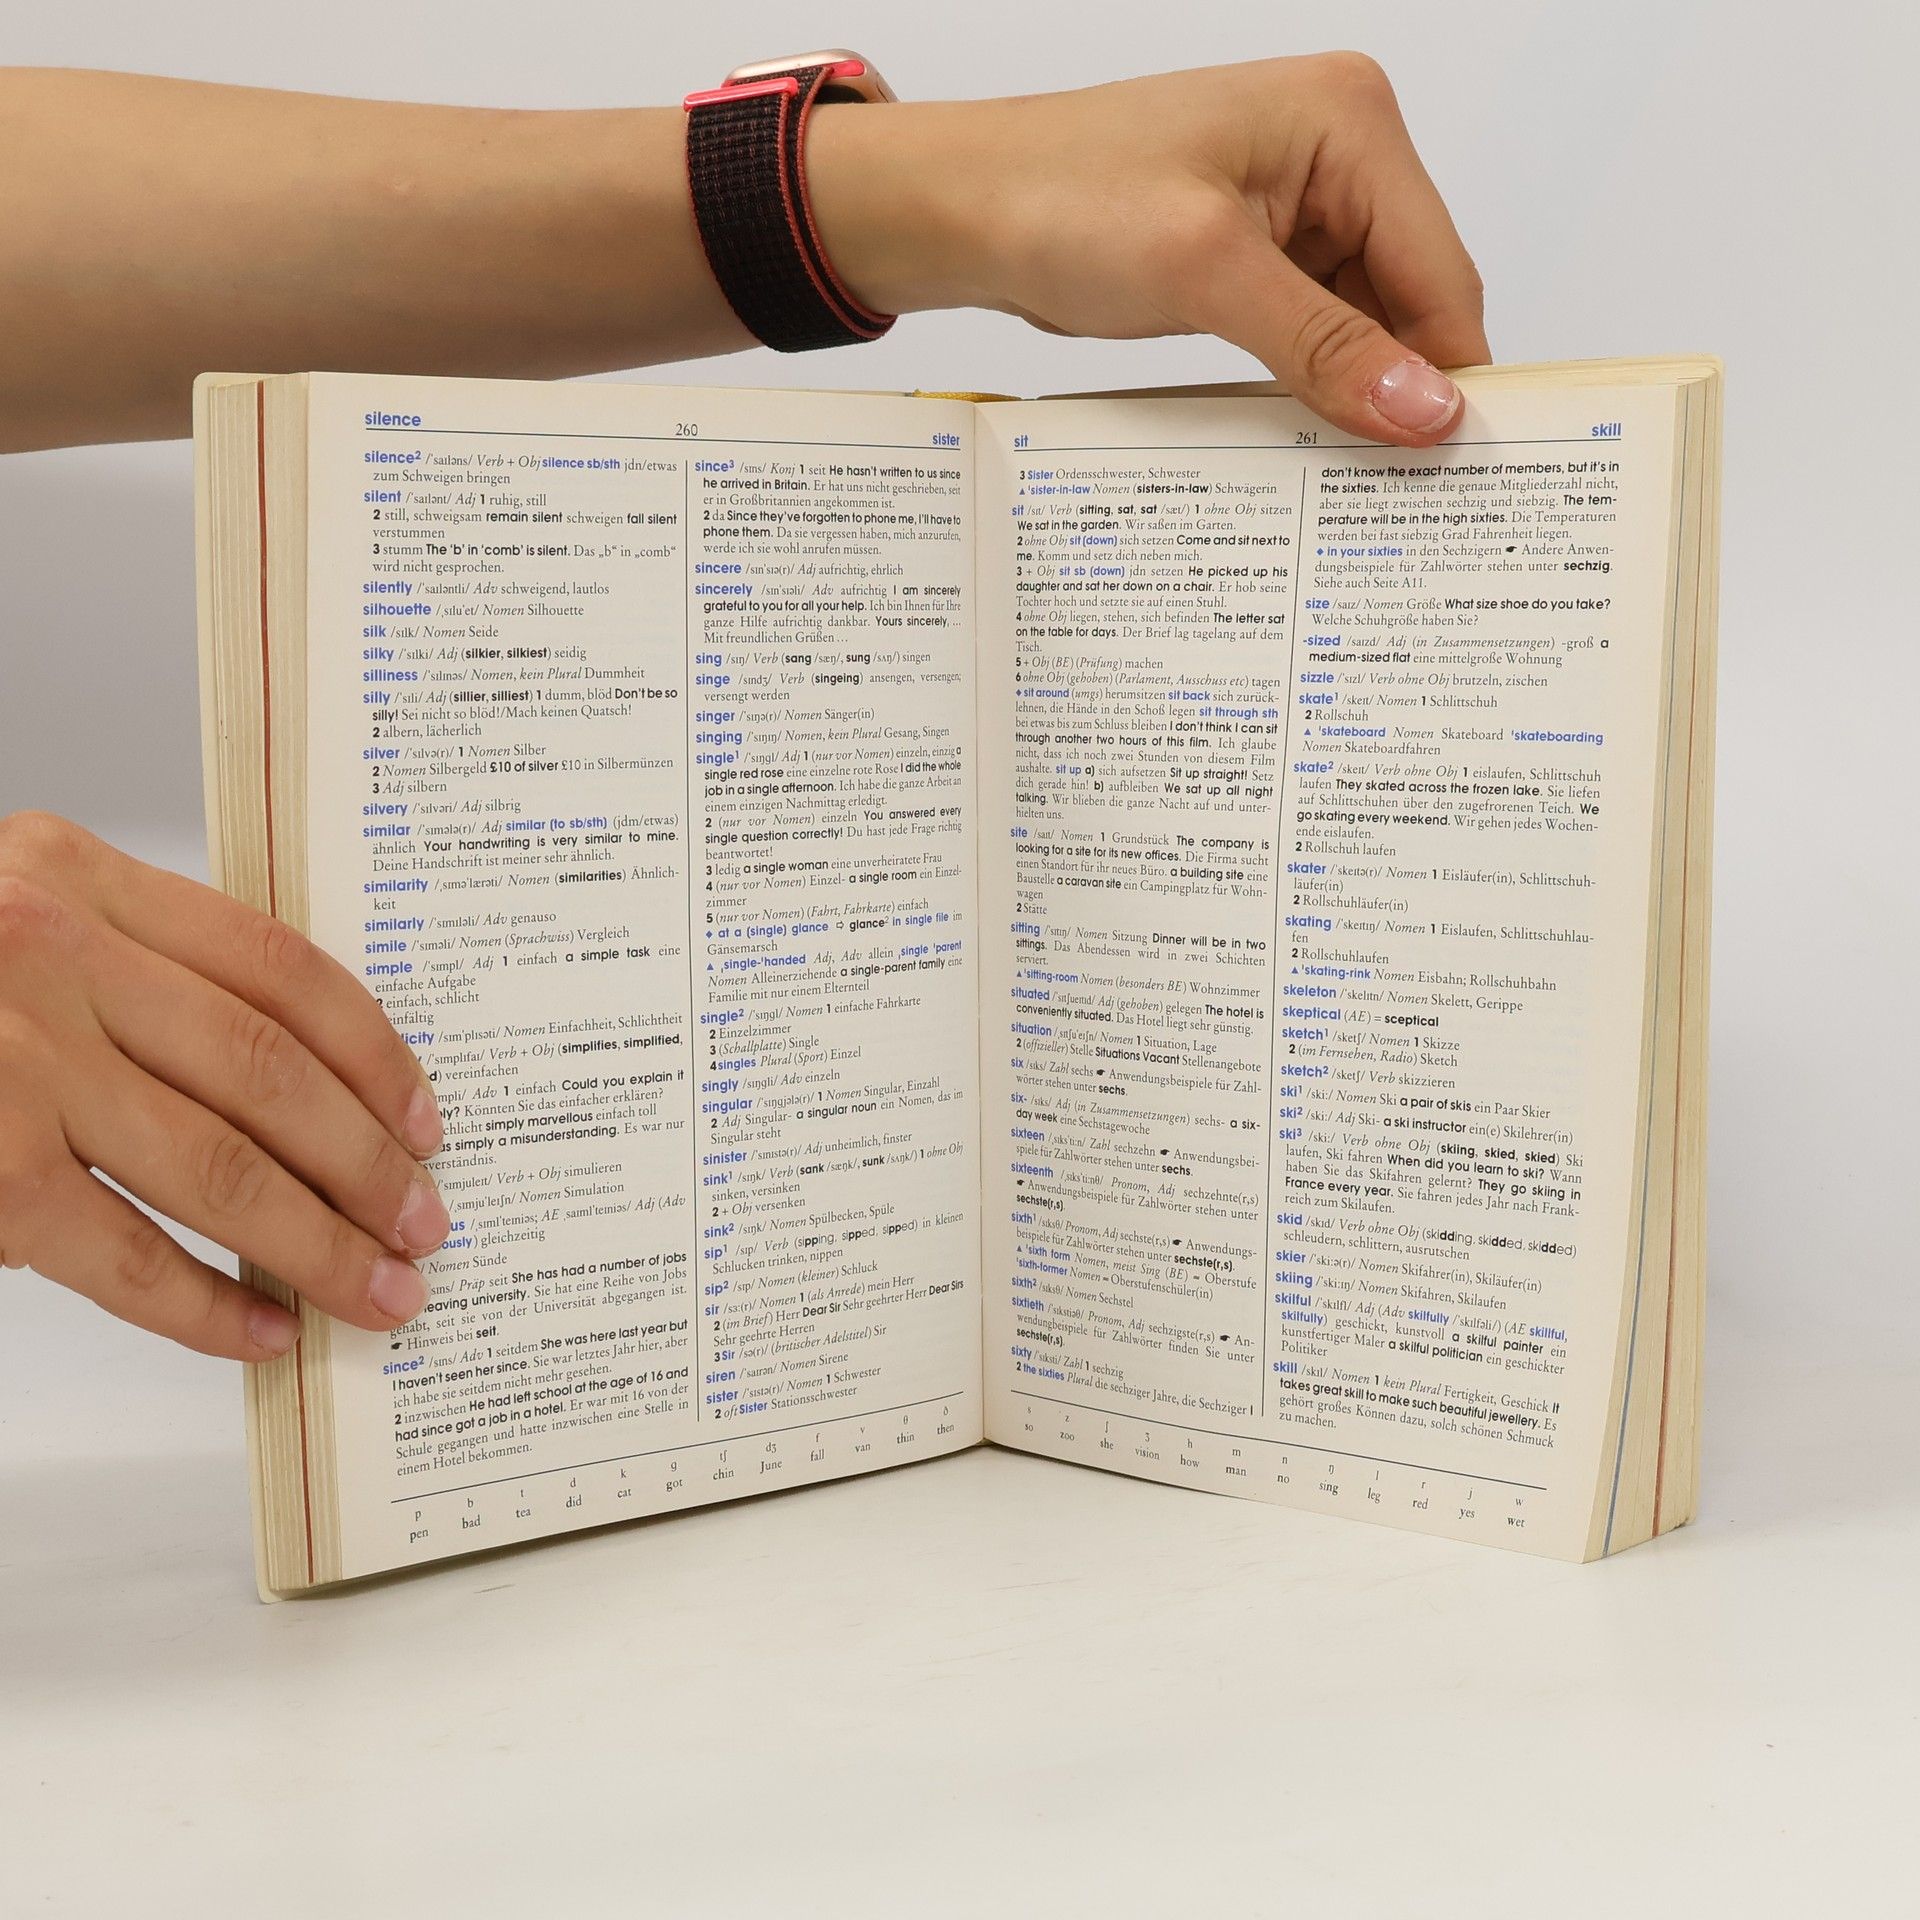 silence
260
sister
silence² /ˈsaɪləns/ Verb + Obj silence sb/sth jdn/etwas
zum Schweigen bringen
silent /ˈsaɪlənt/ Adj 1 ruhig, still
2 still, schweigsam remain silent schweigen fall silent
verstummen
3 stumm The 'b' in 'comb' is silent. Das „b“ in „comb“
wird nicht gesprochen.
silently /ˈsaɪləntli/ Adv schweigend, lautlos
silhouette /ˌsɪluˈet/ Nomen Silhouette
silk /sɪlk/ Nomen Seide
silky /ˈsɪlki/ Adj (silkier, silkiest) seidig
silliness /ˈsɪlinəs/ Nomen, kein Plural Dummheit
silly /ˈsɪli/ Adj (sillier, silliest) 1 dumm, blöd Don't be so
silly! Sei nicht so blöd!/Mach keinen Quatsch!
2 albern, lächerlich
silver /ˈsɪlvə(r)/ 1 Nomen Silber
2 Nomen Silbergeld £10 of silver £10 in Silbermünzen
3 Adj silbern
silvery /ˈsɪlvəri/ Adj silbrig
similar /ˈsɪmələ(r)/ Adj similar (to sb/sth) (jdm/etwas)
ähnlich Your handwriting is very similar to mine.
Deine Handschrift ist meiner sehr ähnlich.
similarity /ˌsɪməˈlærəti/ Nomen (similarities) Ähnlich-
keit
similarly /ˈsɪmɪləli/ Adv genauso
simile /ˈsɪməli/ Nomen (Sprachwiss) Vergleich
simple /ˈsɪmpl/ Adj 1 einfach a simple task eine
einfache Aufgabe
2 einfach, schlicht
einfältig
icity /sɪmˈplɪsəti/ Nomen Einfachheit, Schlichtheit
/ˈsɪmplɪfaɪ/ Verb + Obj (simplifies, simplified,
d) vereinfachen
mpli/ Adv 1 einfach Could you explain it
ly? Könnten Sie das einfacher erklären?
chlicht simply marvellous einfach toll
as simply a misunderstanding. Es war nur
sverständnis.
/ˈsɪmjuleɪt/ Verb + Obj simulieren
/ˌsɪmjuˈleɪʃn/ Nomen Simulation
us /ˌsɪmlˈteɪniəs; AE ˌsaɪmlˈteɪniəs/ Adj (Adv
ously) gleichzeitig
/ Nomen Sünde
sɪns/ Präp seit She has had a number of jobs
leaving university. Sie hat eine Reihe von Jobs
gehabt, seit sie von der Universität abgegangen ist.
☛ Hinweis bei seit.
since² /sɪns/ Adv 1 seitdem She was here last year but
I haven't seen her since. Sie war letztes Jahr hier, aber
ich habe sie seitdem nicht mehr gesehen.
2 inzwischen He had left school at the age of 16 and
had since got a job in a hotel. Er war mit 16 von der
Schule gegangen und hatte inzwischen eine Stelle in
einem Hotel bekommen.
since³ /sɪns/ Konj 1 seit He hasn't written to us since
he arrived in Britain. Er hat uns nicht geschrieben, seit
er in Großbritannien angekommen ist.
2 da Since they've forgotten to phone me, I'll have to
phone them. Da sie vergessen haben, mich anzurufen,
werde ich sie wohl anrufen müssen.
sincere /sɪnˈsɪə(r)/ Adj aufrichtig, ehrlich
sincerely /sɪnˈsɪəli/ Adv aufrichtig I am sincerely
grateful to you for all your help. Ich bin Ihnen für Ihre
ganze Hilfe aufrichtig dankbar. Yours sincerely, ...
Mit freundlichen Grüßen ...
sing /sɪŋ/ Verb (sang /sæŋ/, sung /sʌŋ/) singen
singe /sɪndʒ/ Verb (singeing) ansengen, versengen;
versengt werden
singer /ˈsɪŋə(r)/ Nomen Sänger(in)
singing /ˈsɪŋɪŋ/ Nomen, kein Plural Gesang, Singen
single¹ /ˈsɪŋgl/ Adj 1 (nur vor Nomen) einzeln, einzig a
single red rose eine einzelne rote Rose I did the whole
job in a single afternoon. Ich habe die ganze Arbeit an
einem einzigen Nachmittag erledigt.
2 (nur vor Nomen) einzeln You answered every
single question correctly! Du hast jede Frage richtig
beantwortet!
3 ledig a single woman eine unverheiratete Frau
4 (nur vor Nomen) Einzel- a single room ein Einzel-
zimmer
5 (nur vor Nomen) (Fahrt, Fahrkarte) einfach
◆ at a (single) glance ➪ glance² in single file im
Gänsemarsch
▲ ˌsingle-ˈhanded Adj, Adv allein ˌsingle ˈparent
Nomen Alleinerziehende a single-parent family eine
Familie mit nur einem Elternteil
single² /ˈsɪŋgl/ Nomen 1 einfache Fahrkarte
2 Einzelzimmer
3 (Schallplatte) Single
4 singles Plural (Sport) Einzel
singly /ˈsɪŋgli/ Adv einzeln
singular /ˈsɪŋgjələ(r)/ 1 Nomen Singular, Einzahl
2 Adj Singular- a singular noun ein Nomen, das im
Singular steht
sinister /ˈsɪnɪstə(r)/ Adj unheimlich, finster
sink¹ /sɪŋk/ Verb (sank /sæŋk/, sunk /sʌŋk/) 1 ohne Obj
sinken, versinken
2 + Obj versenken
sink² /sɪŋk/ Nomen Spülbecken, Spüle
sip¹ /sɪp/ Verb (sipping, sipped, sipped) in kleinen
Schlucken trinken, nippen
sip² /sɪp/ Nomen (kleiner) Schluck
sir /sɜː(r)/ Nomen 1 (als Anrede) mein Herr
2 (im Brief) Herr Dear Sir Sehr geehrter Herr Dear Sirs
Sehr geehrte Herren
3 Sir /sə(r)/ (britischer Adelstitel) Sir
siren /ˈsaɪrən/ Nomen Sirene
sister /ˈsɪstə(r)/ Nomen 1 Schwester
2 oft Sister Stationsschwester
p b t d k g tʃ dʒ f v θ ð
pen bad tea did cat got chin June fall van thin then
sit
261
skill
3 Sister Ordensschwester, Schwester
▲ ˈsister-in-law Nomen (sisters-in-law) Schwägerin
sit /sɪt/ Verb (sitting, sat, sat /sæt/) 1 ohne Obj sitzen
We sat in the garden. Wir saßen im Garten.
2 ohne Obj sit (down) sich setzen Come and sit next to
me. Komm und setz dich neben mich.
3 + Obj sit sb (down) jdn setzen He picked up his
daughter and sat her down on a chair. Er hob seine
Tochter hoch und setzte sie auf einen Stuhl.
4 ohne Obj liegen, stehen, sich befinden The letter sat
on the table for days. Der Brief lag tagelang auf dem
Tisch.
5 + Obj (BE) (Prüfung) machen
6 ohne Obj (gehoben) (Parlament, Ausschuss etc) tagen
◆ sit around (umgs) herumsitzen sit back sich zurück-
lehnen, die Hände in den Schoß legen sit through sth
bei etwas bis zum Schluss bleiben I don't think I can sit
through another two hours of this film. Ich glaube
nicht, dass ich noch zwei Stunden von diesem Film
aushalte. sit up a) sich aufsetzen Sit up straight! Setz
dich gerade hin! b) aufbleiben We sat up all night
talking. Wir blieben die ganze Nacht auf und unter-
hielten uns.
site /saɪt/ Nomen 1 Grundstück The company is
looking for a site for its new offices. Die Firma sucht
einen Standort für ihr neues Büro. a building site eine
Baustelle a caravan site ein Campingplatz für Wohn-
wagen
2 Stätte
sitting /ˈsɪtɪŋ/ Nomen Sitzung Dinner will be in two
sittings. Das Abendessen wird in zwei Schichten
serviert.
▲ ˈsitting-room Nomen (besonders BE) Wohnzimmer
situated /ˈsɪtʃueɪtɪd/ Adj (gehoben) gelegen The hotel is
conveniently situated. Das Hotel liegt sehr günstig.
situation /ˌsɪtʃuˈeɪʃn/ Nomen 1 Situation, Lage
2 (offizieller) Stelle Situations Vacant Stellenangebote
six /sɪks/ Zahl sechs ☛ Anwendungsbeispiele für Zahl-
wörter stehen unter sechs.
six- /sɪks/ Adj (in Zusammensetzungen) sechs- a six-
day week eine Sechstagewoche
sixteen /ˌsɪksˈtiːn/ Zahl sechzehn ☛ Anwendungsbei-
spiele für Zahlwörter stehen unter sechs.
sixteenth /ˌsɪksˈtiːnθ/ Pronom, Adj sechzehnte(r,s)
☛ Anwendungsbeispiele für Zahlwörter stehen unter
sechste(r,s).
sixth¹ /sɪksθ/ Pronom, Adj sechste(r,s) ☛ Anwendungs-
beispiele für Zahlwörter stehen unter sechste(r,s).
▲ ˈsixth form Nomen, meist Sing (BE) ≈ Oberstufe
ˈsixth-former Nomen ≈ Oberstufenschüler(in)
sixth² /sɪksθ/ Nomen Sechstel
sixtieth /ˈsɪkstiəθ/ Pronom, Adj sechzigste(r,s) ☛ An-
wendungbeispiele für Zahlwörter finden Sie unter
sechste(r,s).
sixty /ˈsɪksti/ Zahl 1 sechzig
2 the sixties Plural die sechziger Jahre, die Sechziger I
don't know the exact number of members, but it's in
the sixties. Ich kenne die genaue Mitgliederzahl nicht,
aber sie liegt zwischen sechzig und siebzig. The tem-
perature will be in the high sixties. Die Temperaturen
werden bei fast siebzig Grad Fahrenheit liegen.
◆ in your sixties in den Sechzigern ☛ Andere Anwen-
dungsbeispiele für Zahlwörter stehen unter sechzig.
Siehe auch Seite A11.
size /saɪz/ Nomen Größe What size shoe do you take?
Welche Schuhgröße haben Sie?
-sized /saɪzd/ Adj (in Zusammensetzungen) -groß a
medium-sized flat eine mittelgroße Wohnung
sizzle /ˈsɪzl/ Verb ohne Obj brutzeln, zischen
skate¹ /skeɪt/ Nomen 1 Schlittschuh
2 Rollschuh
▲ ˈskateboard Nomen Skateboard ˈskateboarding
Nomen Skateboardfahren
skate² /skeɪt/ Verb ohne Obj 1 eislaufen, Schlittschuh
laufen They skated across the frozen lake. Sie liefen
auf Schlittschuhen über den zugefrorenen Teich. We
go skating every weekend. Wir gehen jedes Wochen-
ende eislaufen.
2 Rollschuh laufen
skater /ˈskeɪtə(r)/ Nomen 1 Eisläufer(in), Schlittschuh-
läufer(in)
2 Rollschuhläufer(in)
skating /ˈskeɪtɪŋ/ Nomen 1 Eislaufen, Schlittschuhlau-
fen
2 Rollschuhlaufen
▲ ˈskating-rink Nomen Eisbahn; Rollschuhbahn
skeleton /ˈskelɪtn/ Nomen Skelett, Gerippe
skeptical (AE) = sceptical
sketch¹ /sketʃ/ Nomen 1 Skizze
2 (im Fernsehen, Radio) Sketch
sketch² /sketʃ/ Verb skizzieren
ski¹ /skiː/ Nomen Ski a pair of skis ein Paar Skier
ski² /skiː/ Adj Ski- a ski instructor ein(e) Skilehrer(in)
ski³ /skiː/ Verb ohne Obj (skiing, skied, skied) Ski
laufen, Ski fahren When did you learn to ski? Wann
haben Sie das Skifahren gelernt? They go skiing in
France every year. Sie fahren jedes Jahr nach Frank-
reich zum Skilaufen.
skid /skɪd/ Verb ohne Obj (skidding, skidded, skidded)
schleudern, schlittern, ausrutschen
skier /ˈskiːə(r)/ Nomen Skifahrer(in), Skiläufer(in)
skiing /ˈskiːɪŋ/ Nomen Skifahren, Skilaufen
skilful /ˈskɪlfl/ Adj (Adv skilfully /ˈskɪlfəli/) (AE skillful,
skillfully) geschickt, kunstvoll a skilful painter ein
kunstfertiger Maler a skilful politician ein geschickter
Politiker
skill /skɪl/ Nomen 1 kein Plural Fertigkeit, Geschick It
takes great skill to make such beautiful jewellery. Es
gehört großes Können dazu, solch schönen Schmuck
zu machen.
s z ʃ ʒ h m n ŋ l r j w
so zoo she vision how man no sing leg red yes wet